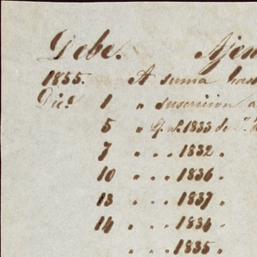 Debe. Ajen
1855. A suma
Dice. 1 " suscricion a
5 " 1833 de
7 " " " 1832 "
10 " " " 1836 "
13 " " " 1837 "
14 " " " 1834 "
" " " 1835 "